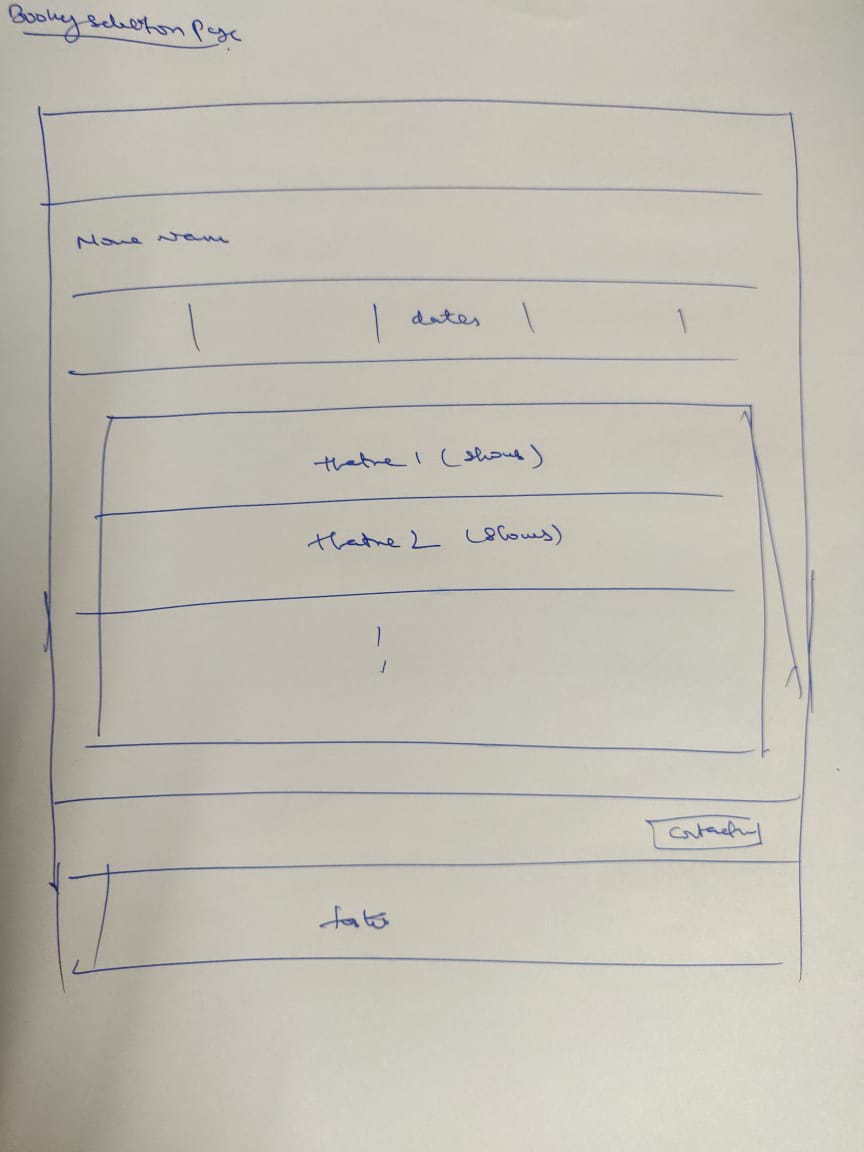 Booking selection Page
Movie Name
dates
theatre 1 (shows)
theatre 2 (shows)
footer